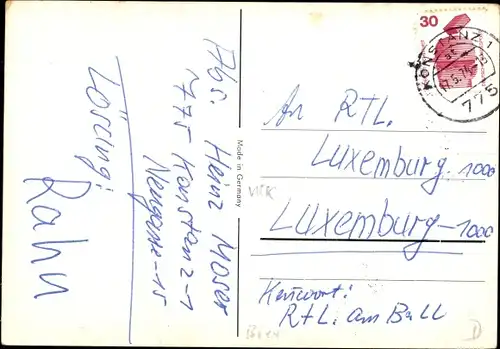 Abs. Heinz Moser
775 Konstanz-1
Neugasse-15
Lösung:
Rahn
Made in Germany
30
KONSTANZ 1
775
An RTL.
Luxemburg 1000
Luxemburg-1000
Kennwort:
RTL. am Ball